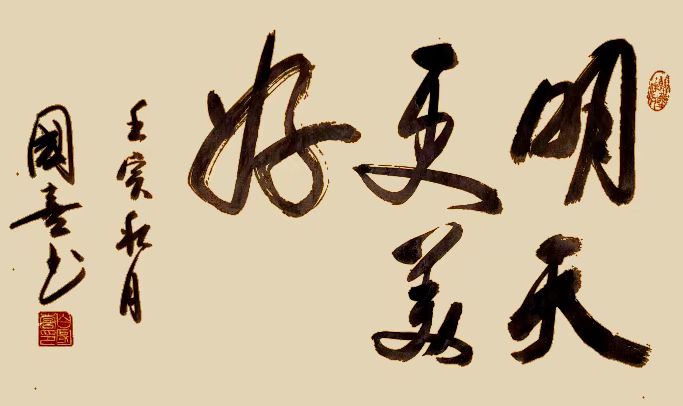 明天
更美
好
壬寅秋月
國喜书